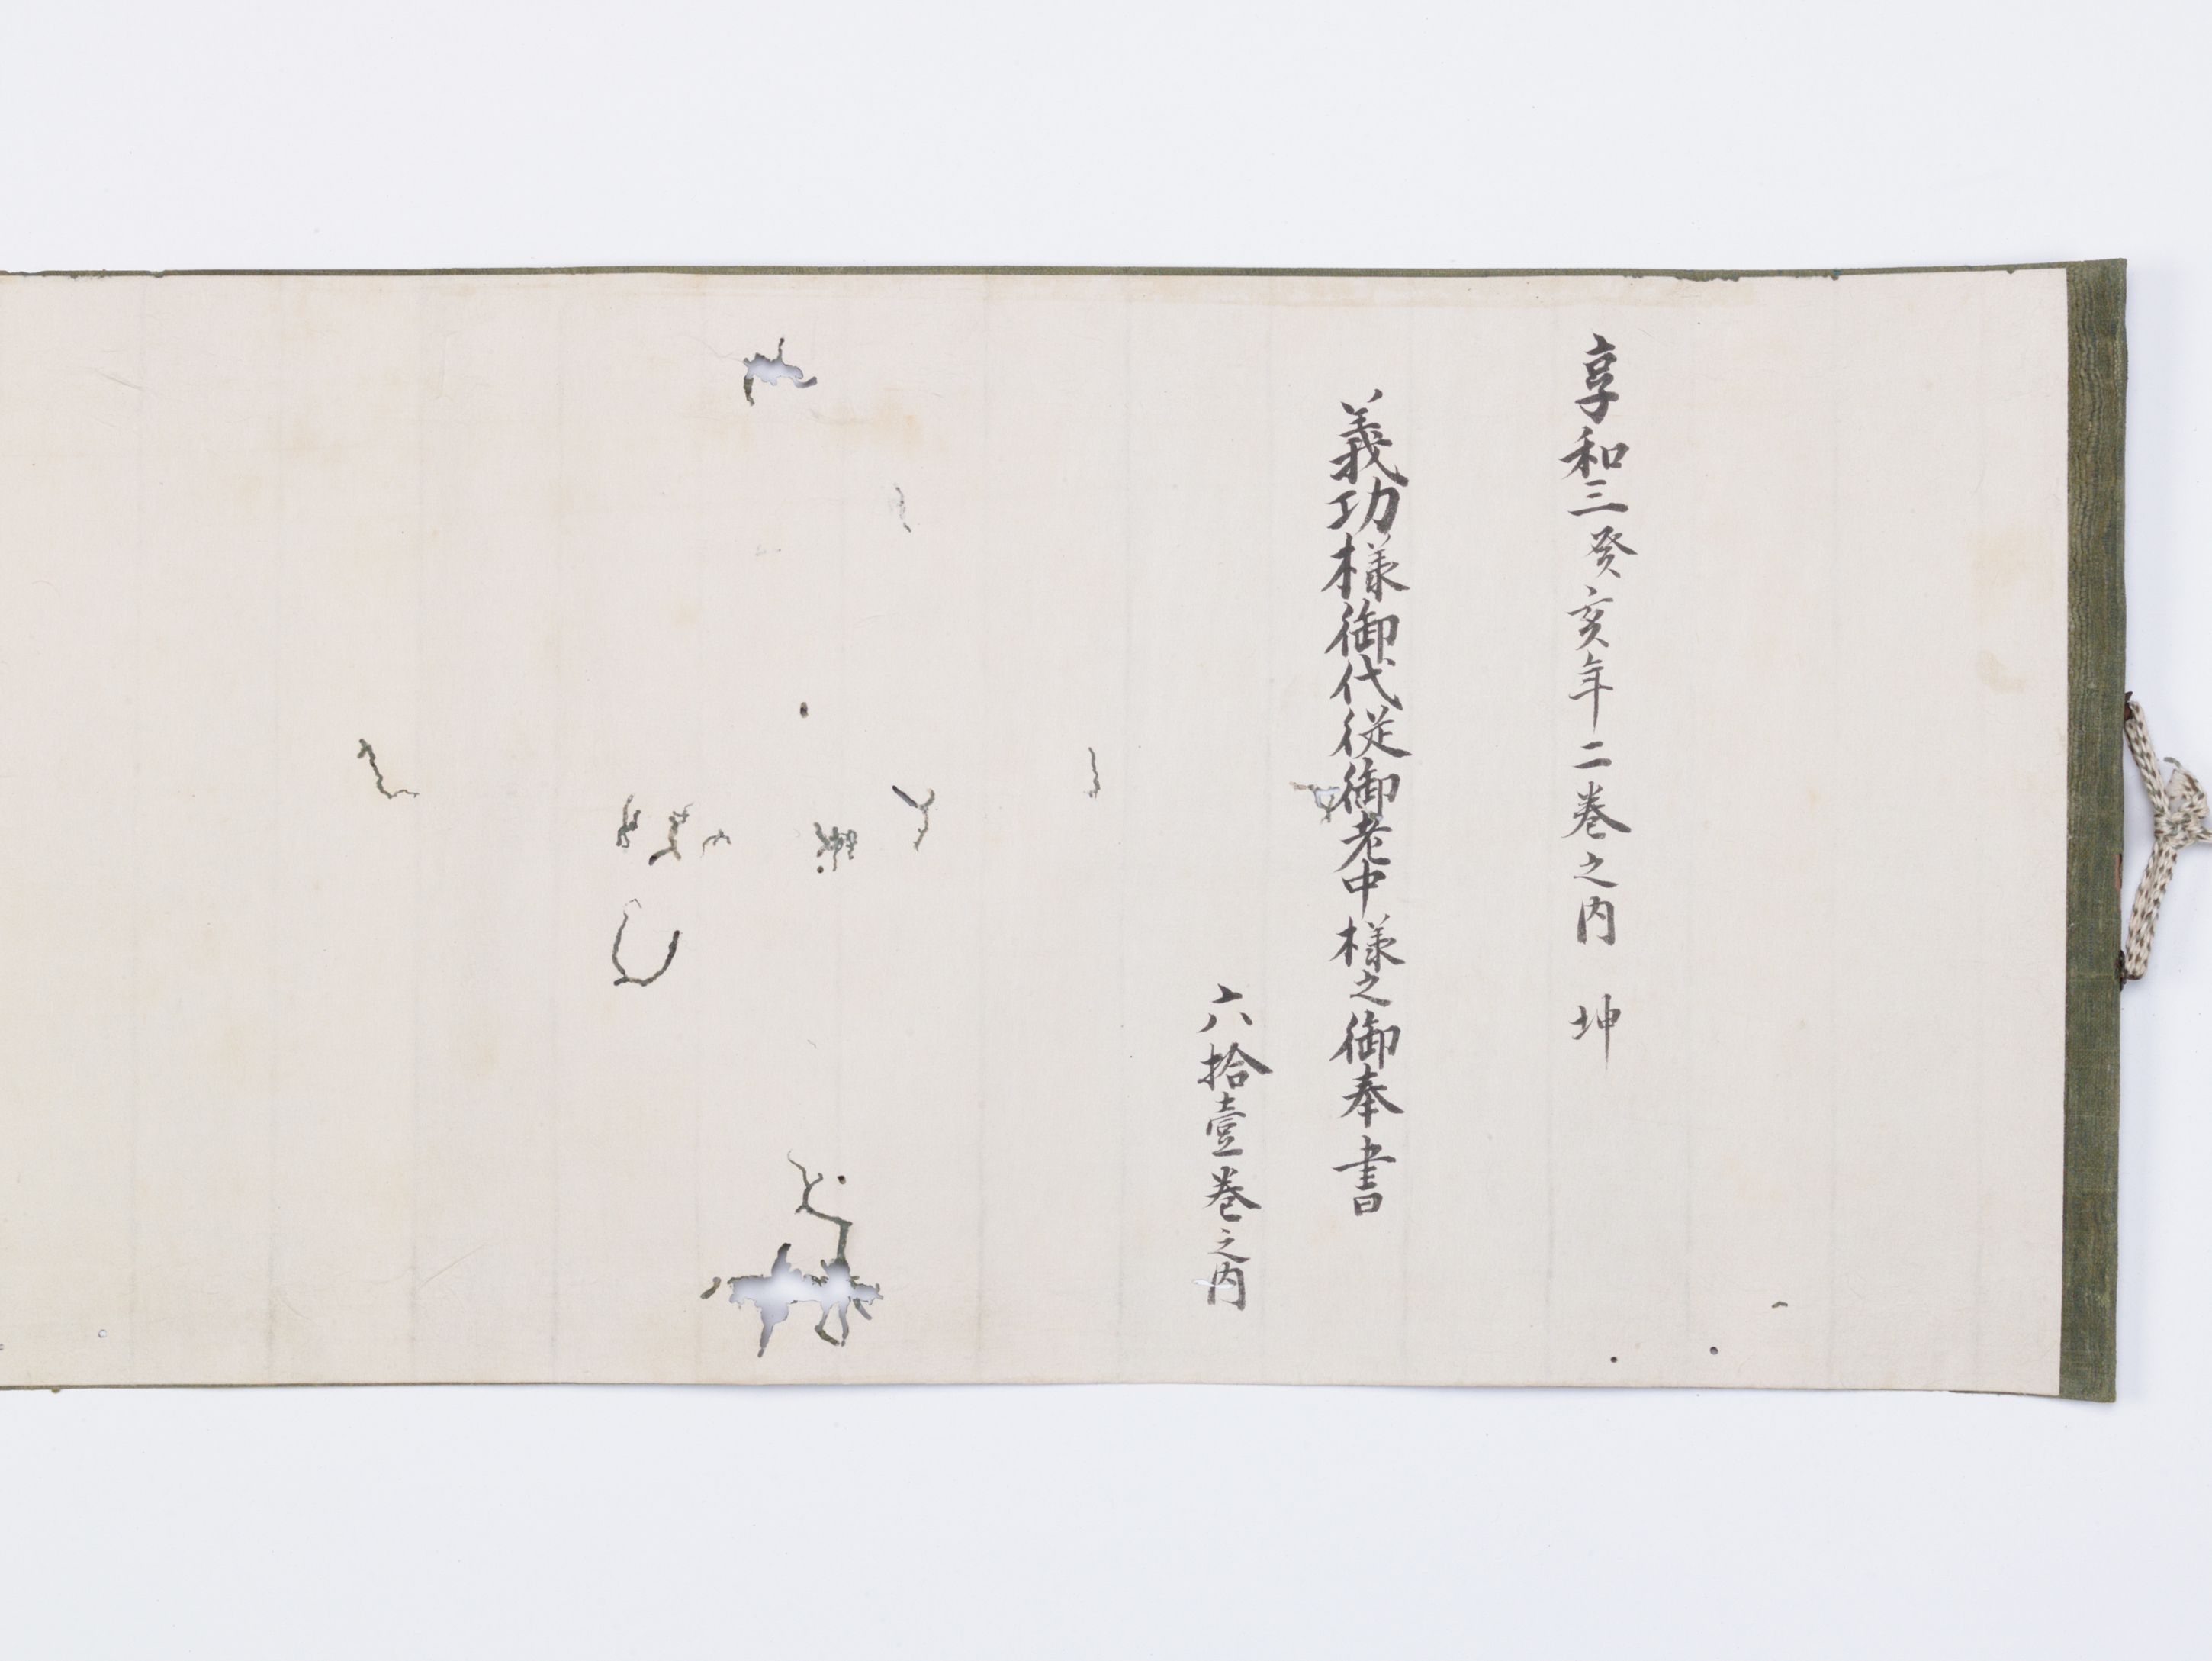 享和三癸亥年二巻之内　坤
義功様御代従御老中様之御奉書
六拾壹巻之内